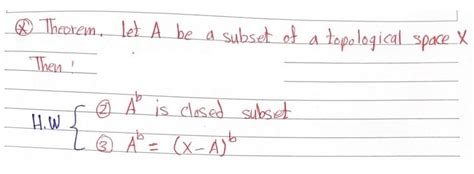 ⊗ Theorem. let A be a subset of a topological space X
Then :
H.W { ② A^b is closed subset
③ A^b = (X-A)^b